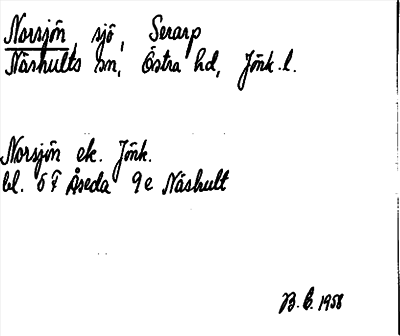 Norsjön, sjö, Serarp
Näshults sn, Östra hd, Jönk. l.
Norsjön ek. Jönk.
bl. 5 F Åseda 9 e Näshult
B. E. 1958